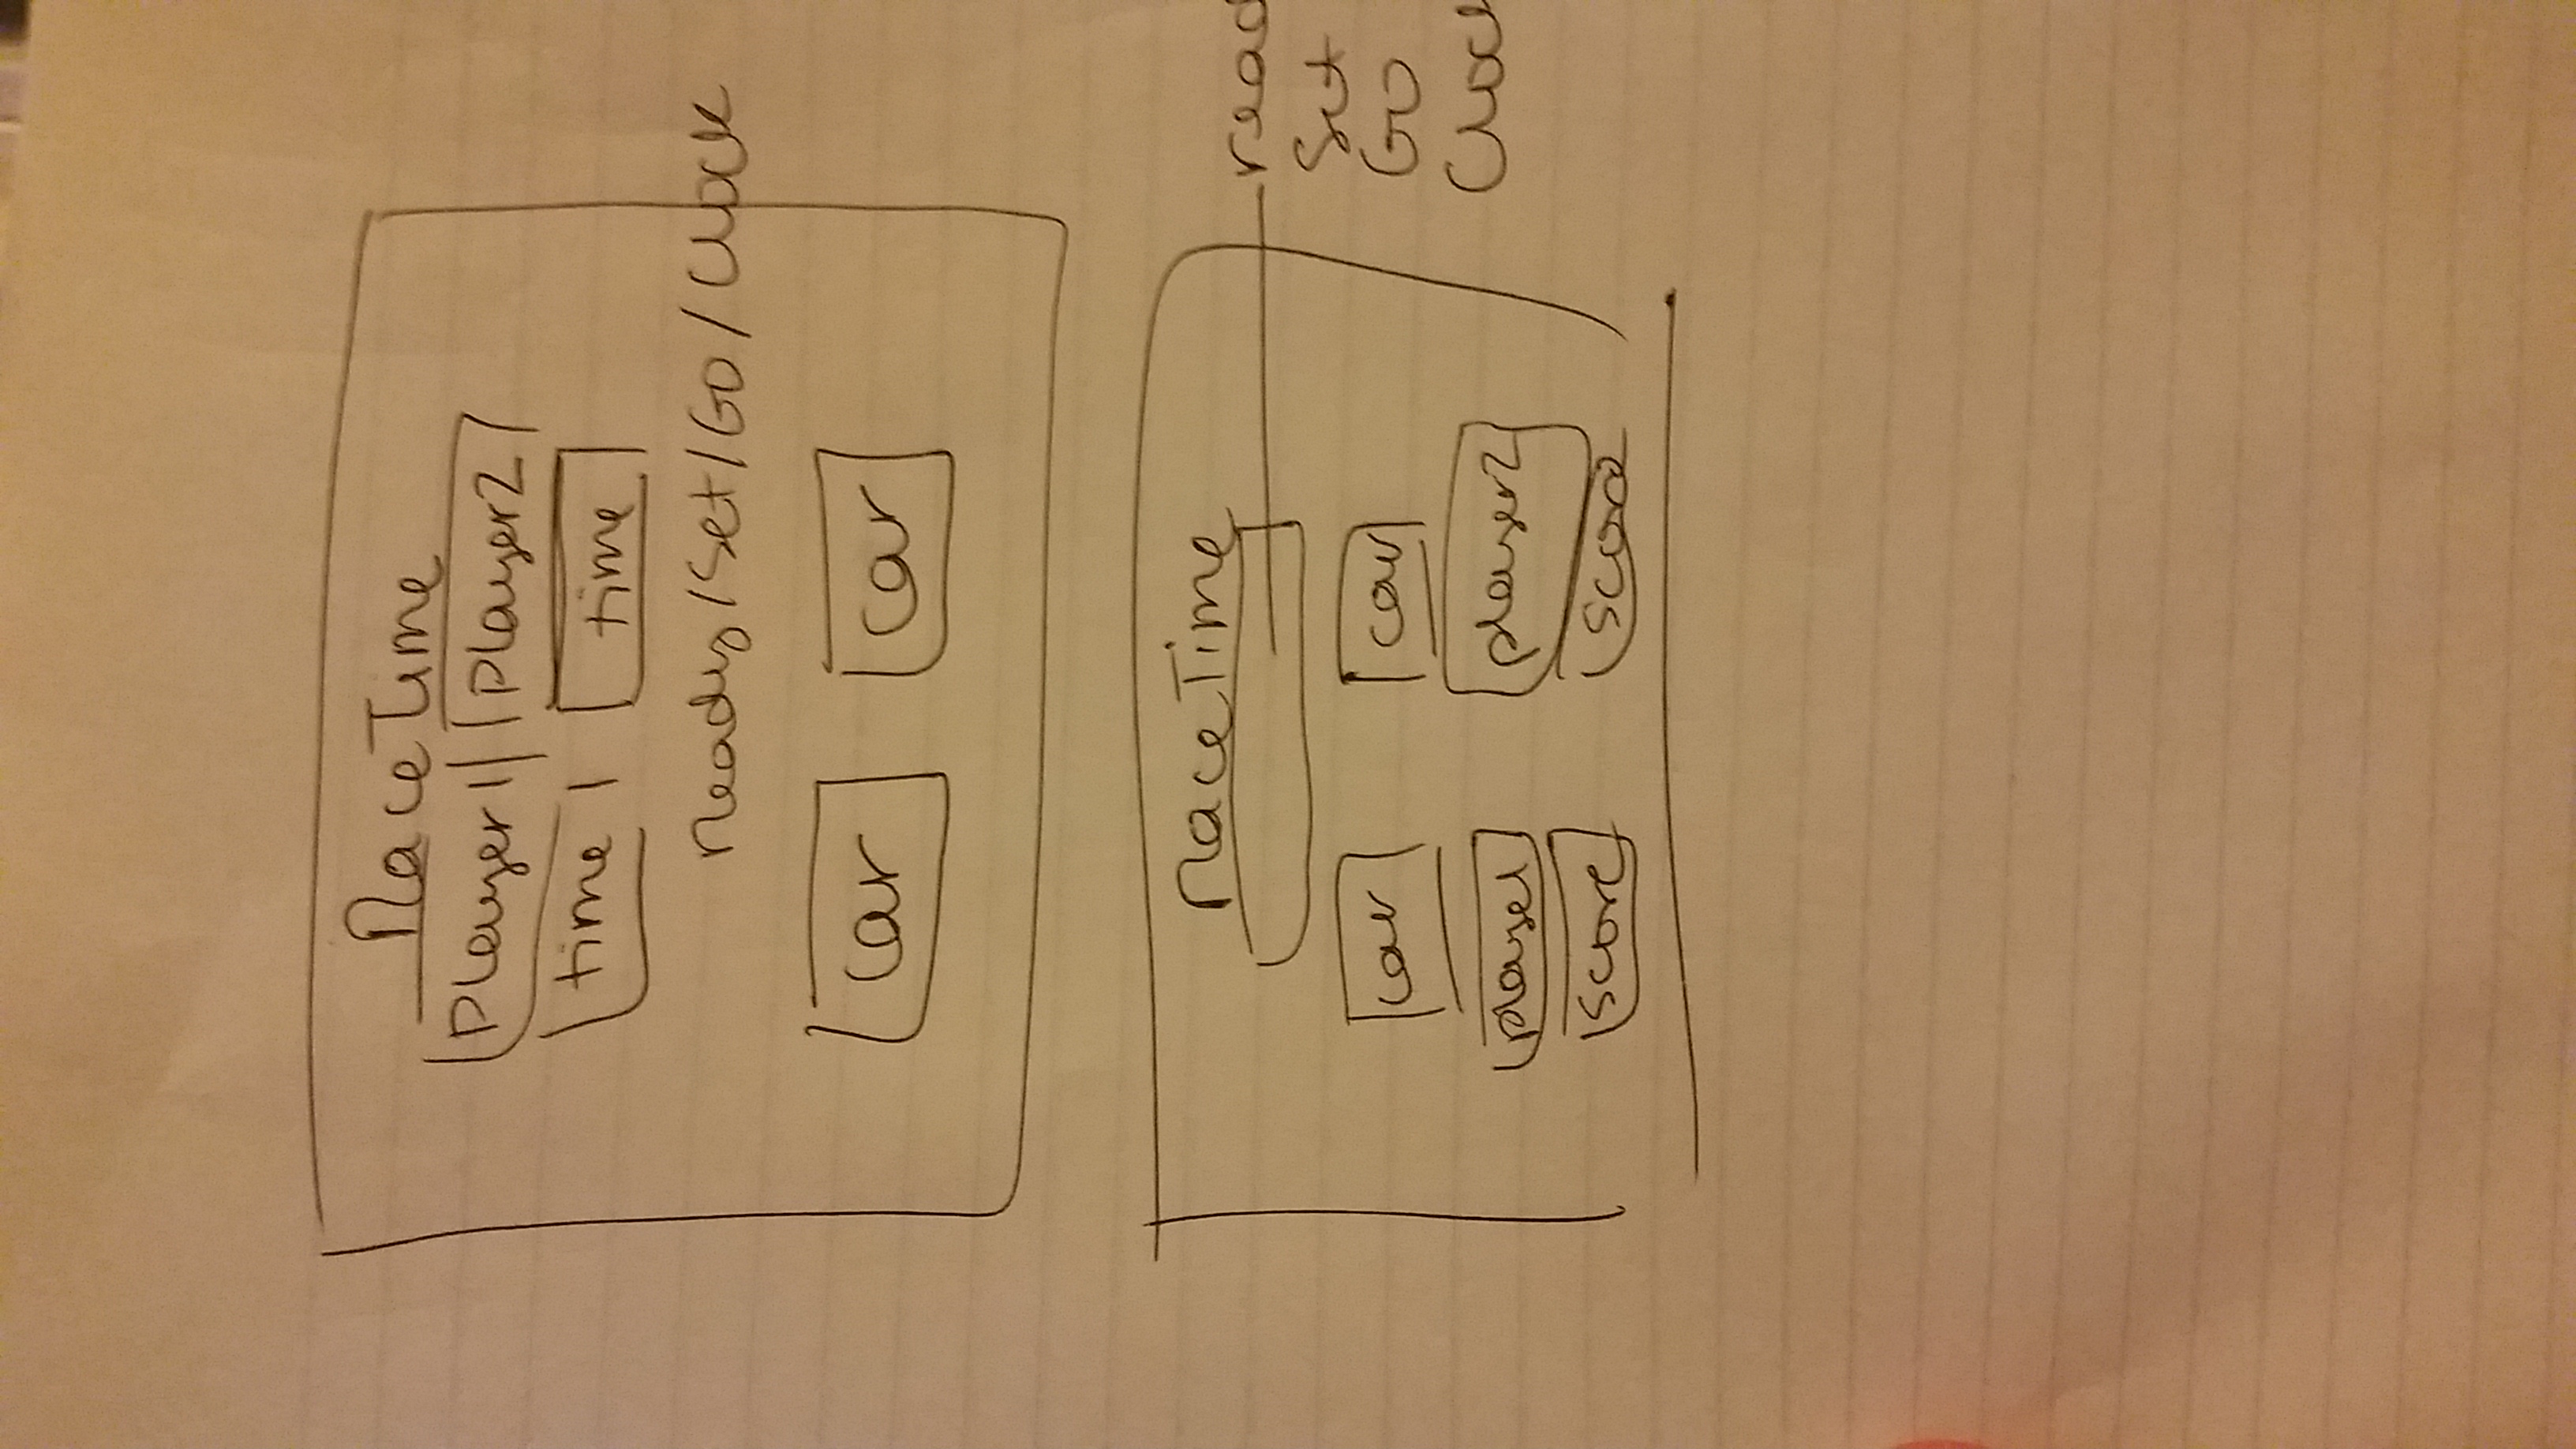 RaceTime
player1 player2
time time
ready/Set/Go/Clock
car car
raceTime
read
Set
car car
Go
Clock
player2
score score